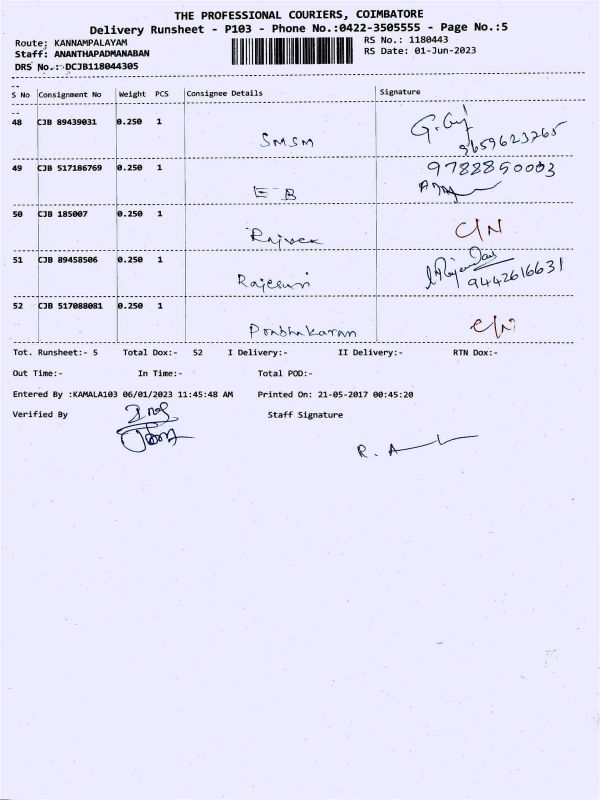 THE PROFESSIONAL COURIERS, COIMBATORE
Delivery Runsheet - P103 - Phone No.:0422-3505555 - Page No.:5
Route: KANNAMPALAYAM RS No.: 1180443
Staff: ANANTHAPADMANABAN RS Date: 01-Jun-2023
DRS No.:-DCJB118044305
S No Consignment No Weight PCS Consignee Details Signature
48 CJB 89439031 0.250 1 SMSM 9659623265
49 CJB 517186769 0.250 1 EB 9788850003
50 CJB 185007 0.250 1 C/N
51 CJB 89458506 0.250 1 Rajesuri 9442616631
52 CJB 517088081 0.250 1 Prabhakaran C/N
Tot. Runsheet:- 5 Total Dox:- 52 I Delivery:- II Delivery:- RTN Dox:-
Out Time:- In Time:- Total POD:-
Entered By :KAMALA103 06/01/2023 11:45:48 AM Printed On: 21-05-2017 00:45:20
Verified By Staff Signature
R. A